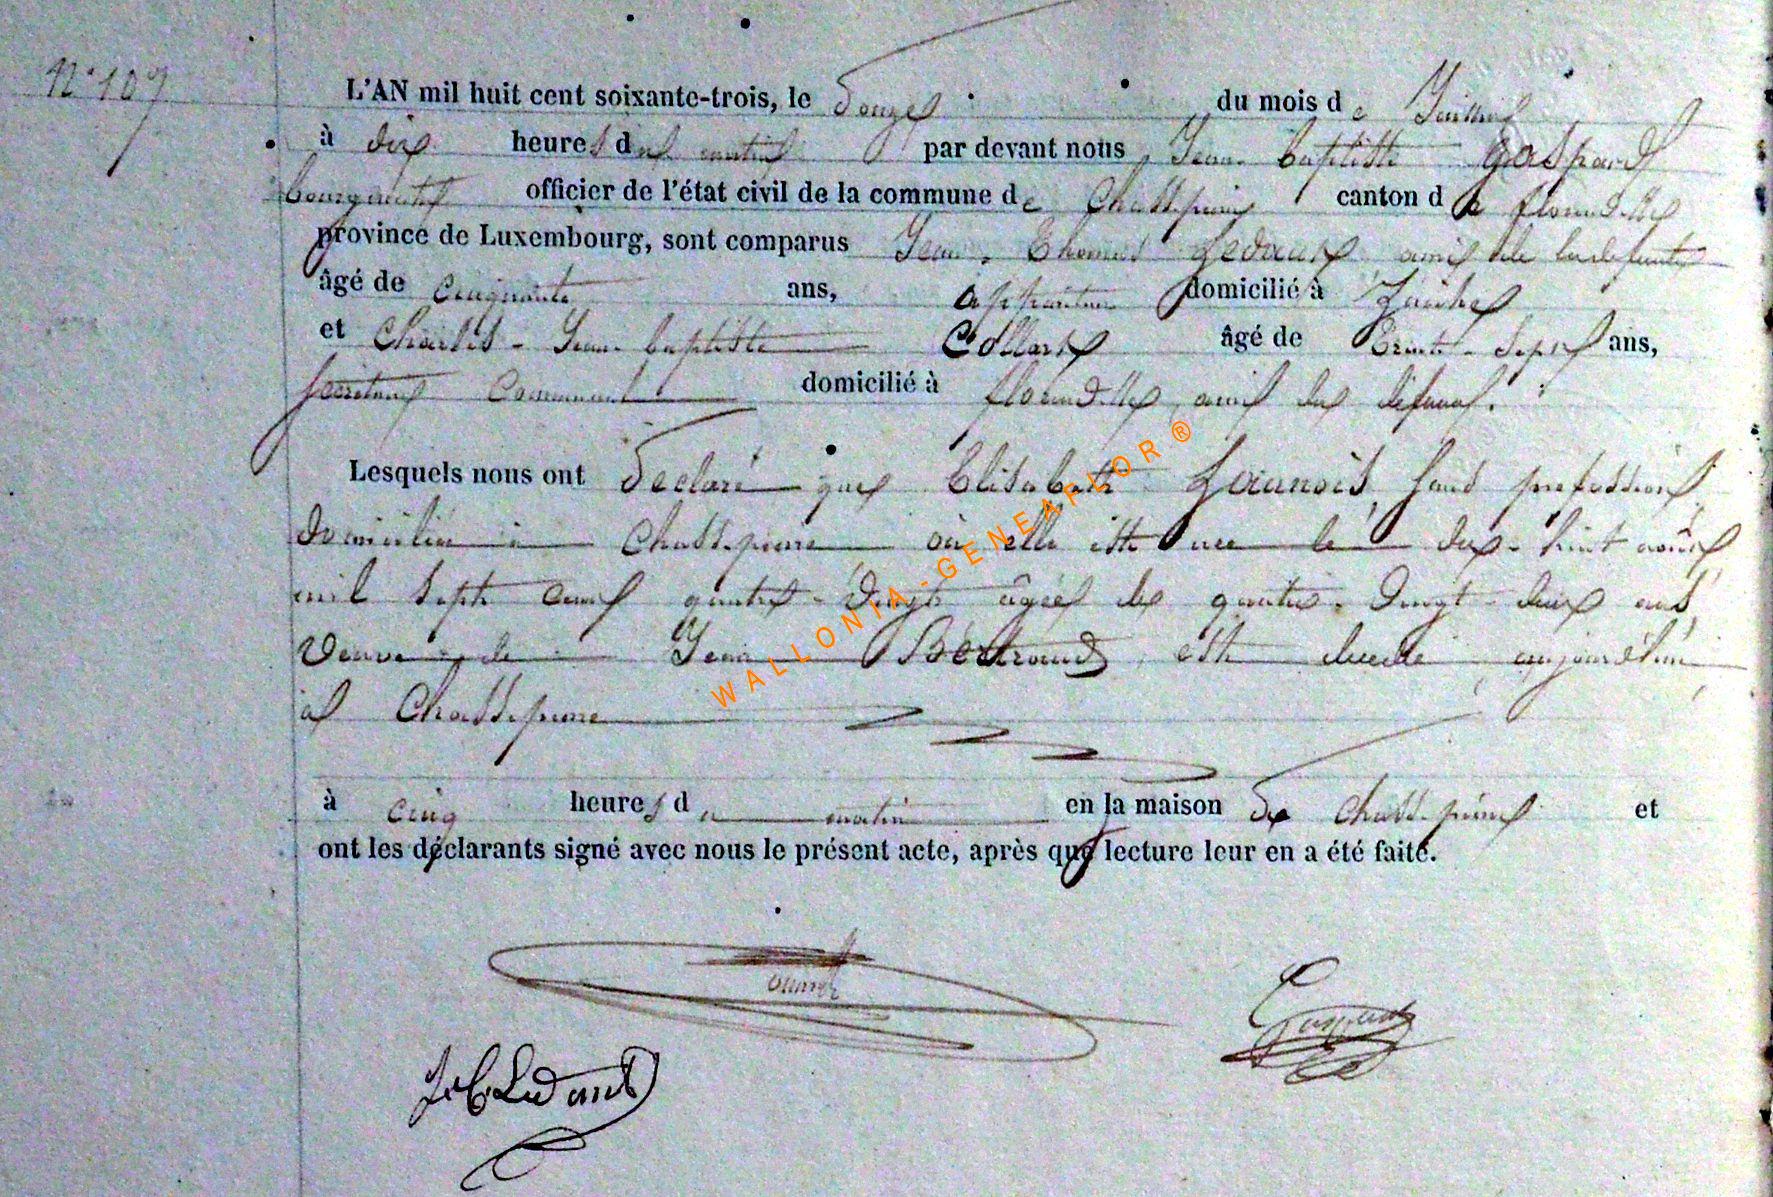 N° 107
L'AN mil huit cent soixante-trois, le Douze du mois de Juillet
à dix heures du matin par devant nous Jean baptiste gaspard
bourgmestre officier de l'état civil de la commune de Chassepierre canton de florenville
province de Luxembourg, sont comparus Jean Thomas Ledant ami de la defunte
âgé de cinquante ans, domicilié à
et Charles - Jean baptiste Collart âgé de Trente - Sept ans,
Secretaire Communal domicilié à florenville, ami du defunt.
Lesquels nous ont Declaré que Elisabeth Launois, sans profession
domiciliée à Chassepierre où elle est née le dix-huit août
mil Sept cent quatre-Vingt âgée de quatre-Vingt-deux ans,
Veuve de Jean Bertrand, est decedée aujourd'hui
à Chassepierre
à cinq heures du matin en la maison de Chassepierre et
ont les déclarants signé avec nous le présent acte, après que lecture leur en a été faite.
Gaspard
J. T. Ledant
WALLONIA-GENEAFLOR ®